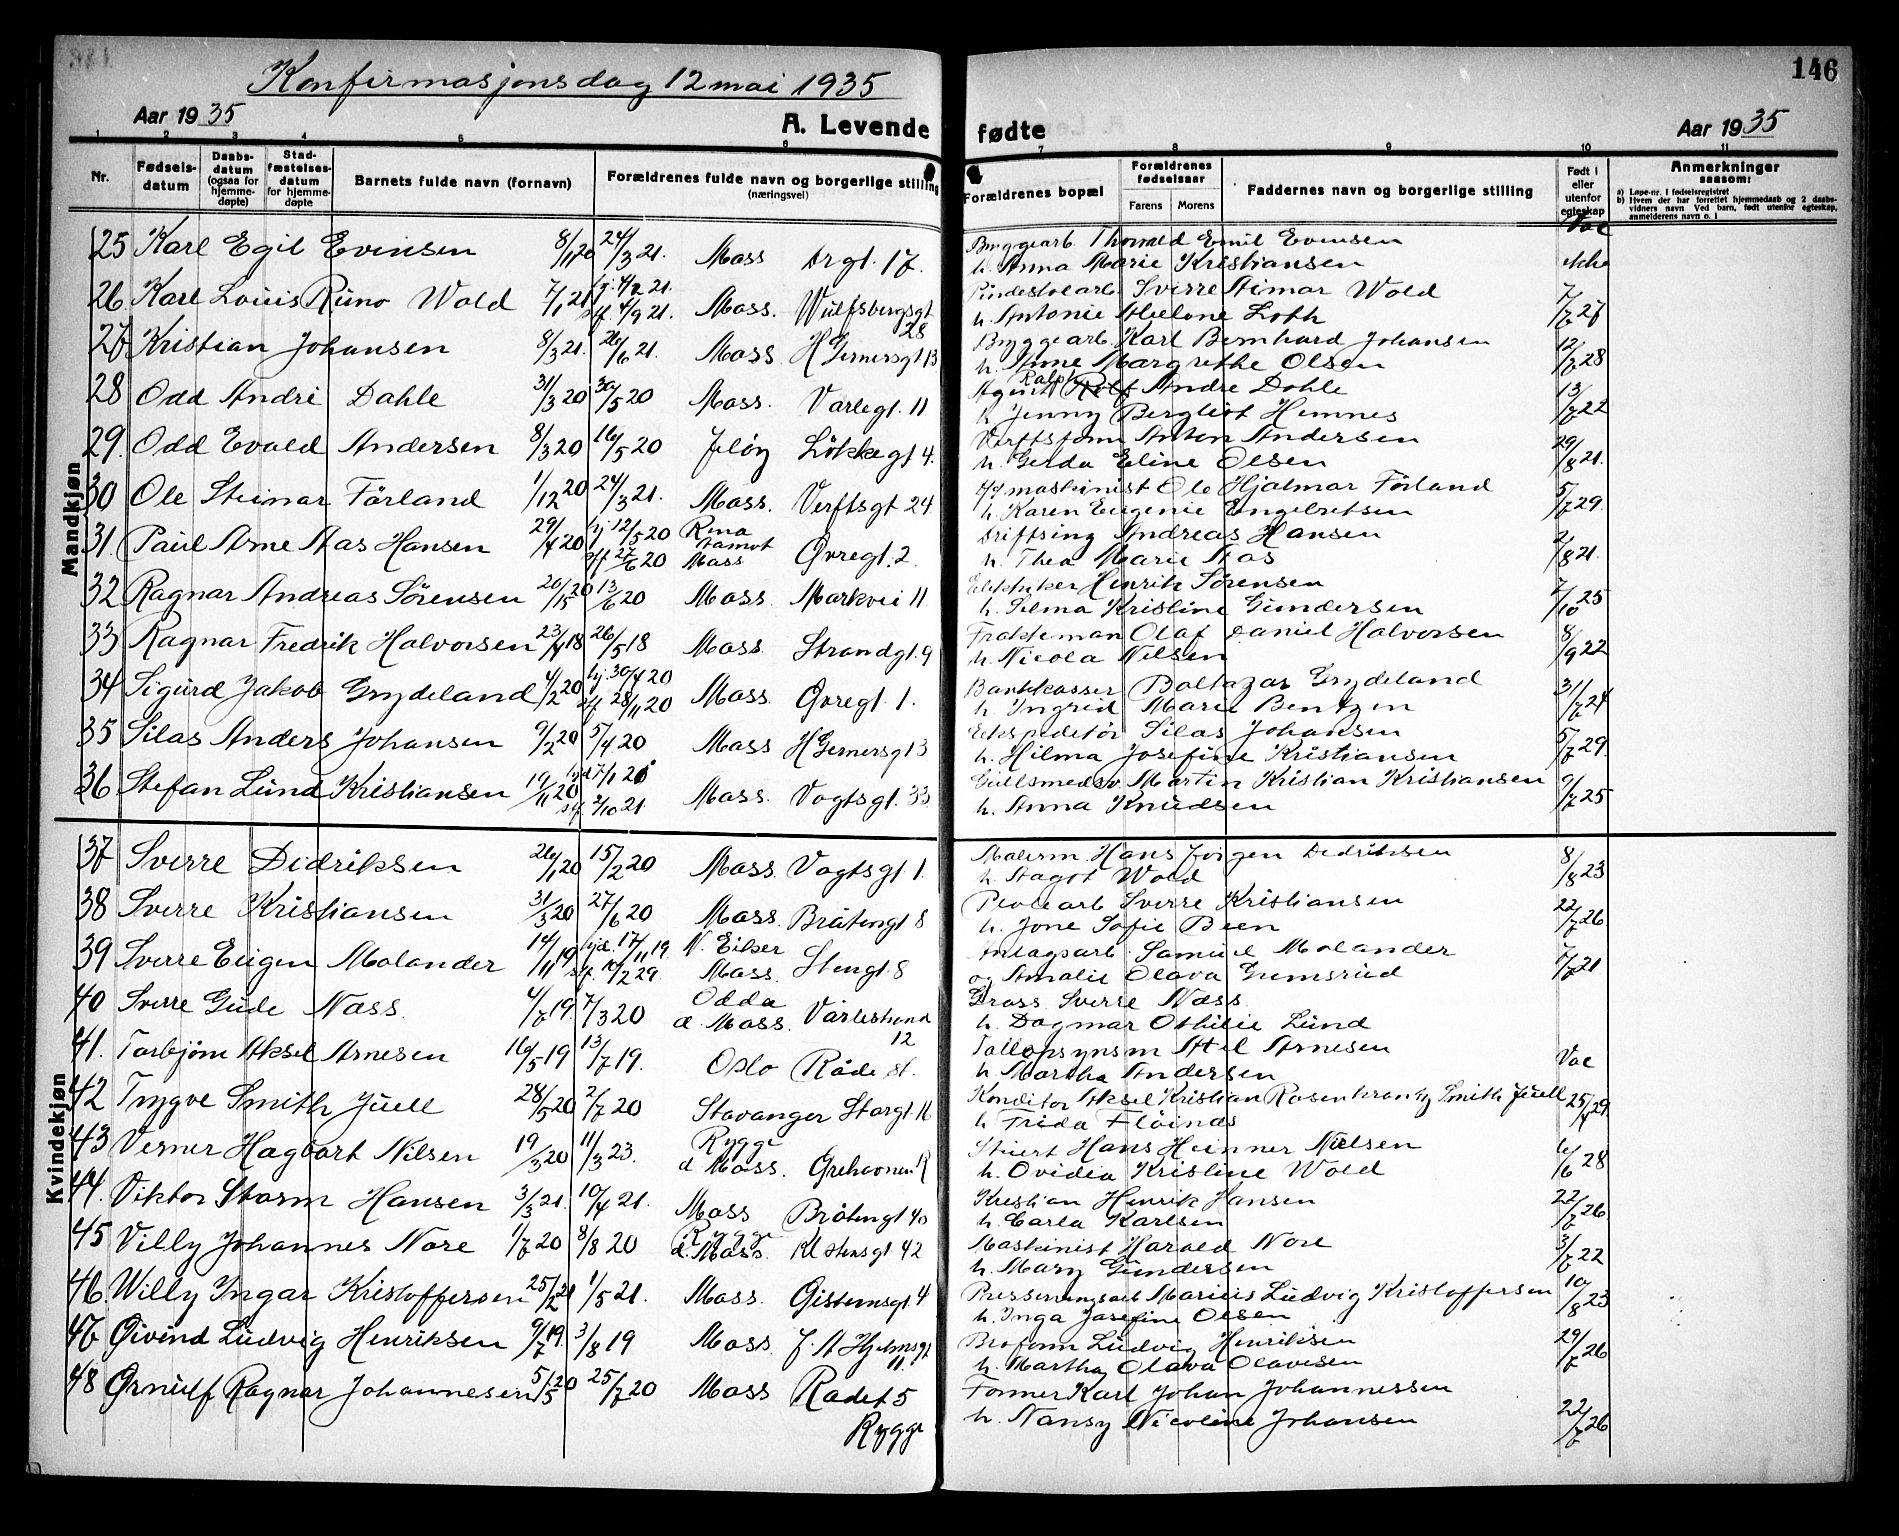 146
Konfirmasjonsdag 12 mai 1935
Aar 1935
A. Levende fødte
Aar 1935
1 2 3 4 5 6 7 8 9 10 11
Nr.
Fødsels-datum
Daabs-datum (ogsaa for hjemme-døpte)
Stad-fæstelses-datum for hjemme-døpte
Barnets fulde navn (fornavn)
Forældrenes fulde navn og borgerlige stilling (næringsvei)
Forældrenes bopæl
Forældrenes fødselsaar
Farens Morens
Faddernes navn og borgerlige stilling
Født i eller utenfor egteskap
Anmerkninger saasom:
a) Løpe-nr. i fødselsregistret
b) Hvem der har forrettet hjemmedaab og 2 daabs-vidners navn Ved barn, født utenfor egteskap, anmelderens navn o. l
Mandkjøn
25 Karl Egil Evensen 8/1 20 24/3 21. Moss Argt. 17. Byggearb. Thorvald Emil Evensen Vac
h. Anna Marie Kristiansen ikke
26 Karl Louis Runo Wold 7/1 21 hj. 4/2 21. st. 4/9 21. Moss. Wulfsbergsgt 28 Sverre Aimar Wold 7/7 27
h. Antonie Alelone Loth
27 Kristian Johansen 8/3 21. 26/6 21 Moss. H Gernersgt 13 Byggearb. Karl Bernhard Johansen 12/7 28
h. Anne Margrethe Olsen
28 Odd André Dahle 31/3 20 30/5 20 Moss. Varlegt. 11 Agent Ralph Andre Dahle 13/7 22
h Jenny Bergliot Hemnes
29. Odd Evald Andersen 8/3 20 16/5 20 Jeløy Løkkegt 4. Verftsform Anton Andersen 29/8 21.
h. Gerda Eline Olsen
30 Ole Steinar Förland 1/12 20 24/3 21. Moss. Verftsgt 24 maskinist Ole Hjalmar Förland 5/7 29.
h. Karen Eugenie Engebretsen
31 Paul Arne Aas Hansen 29/4 20 hj. 12/5 20 Rena Aamot st 27/6 20 Moss Øvregt. 2 Driftsing Andreas Hansen 2/8 21.
h. Thea Marie Aas
32 Ragnar Andreas Sörensen 20/15 20 13/6 20 Moss. Markvei 11 Elektriker Henrik Sørensen 7/10 25
h. Selma Kristine Gundersen
33 Ragnar Fredrik Halvorsen 23/4 18 26/5 18 Moss. Strandgt. 9 Frakteman Olaf Daniel Halvorsen 8/9 22
h. Nicola Nilsen
34 Sigurd Jakob Grydeland 4/2 20 hj. 30/4 20 st. 28/11 20 Moss. Øvregt. 1. Bankkasser Baltazar Grydeland 31/7 24
h Ingrid Marie Bentzen
35 Silas Anders Johansen 9/2 20 5/4 20 Moss H Gernersgt 3 Ekspeditør Silas Johansen 5/7 29.
h. Hilma Josefine Kristiansen
36 Stefan Lund Kristiansen 19/11 20 hjd 17/1 21 st. 2/10 21. Moss. Vogtsgt. 33 Gullsmedsv. Martin Kristian Kristiansen 9/7 25
h. Anna Knudsen
Kvindekjøn
37 Sverre Didriksen 26/1 20 15/2 20 Moss. Vogtsgt 1. Malerm. Hans Jörgen Didriksen 8/8 23
h. Aagot Wold
38 Sverre Kristiansen 31/3 20 27/6 20 Moss. Bråtengt 8 Sverre Kristiansen 22/7 26
h. Jone Sofie Been
39 Sverre Eugen Molander 14/11 19 hjd. 17/11 19. N. Eiker st. 10/2 29. Moss. Stengt. 8 Anlagsarb. Samuel Molander 7/7 21
og Amalie Olava Gumsrud
40 Sverre Gude Næss. 4/7 19. 7/3 20 Odda d. Moss. Varlestrand 12 Gross Sverre Næss
h. Dagmar Othilie Lund
41. Torbjørn Aksel Arnesen 16/5 19 13/7 19. Oslo Råde st. Tollopsynsm Atel Arnesen Vac
h. Martha Andersen
42 Trygve Smith Juell 28/5 20 2/7 20 Stavanger Storgt 16 Konditor Aksel Kristian Rosenkrantz Smith Juell 25/4 29
h Frida Fløinæs
43 Verner Hagbart Nilsen 19/3 20 11/3 23. Rygge d Moss. Stuert Hans Heinner Nielsen 6/6 28
h. Ovidea Kristine Wold
44. Viktor Storm Hansen 3/3 21. 10/4 21. Moss Bråtengt 40 Kristian Henrik Hansen 22/7 26
h. Carla Karlsen
45 Villy Johannes Nore 1/7 20 8/8 20 Rygge d. Moss. Kl Stensgt 42 Maskinist Harald Nore 3/7 22
h. Mary Gundersen
46. Willy Ingar Kristoffersen 25/2 21 1/5 21. Moss. Gistemsgt 4 Marius Ludvig Kristoffersen 10/8 23
h. Inga Josefine Olsen
47 Øivind Ludvig Henriksen 9/7 19. 3/8 19 Moss. J. A Hjelmsgt 11. Broform Ludvig Henriksen 29/7 26
h. Martha Olava Olavesen
48 Ørnulf Ragnar Johannesen 5/5 20 25/7 20 Moss Rådet 5 Rygge Former Karl Johan Johannessen
h. Nansy Nicoline Johansen 22/7 26